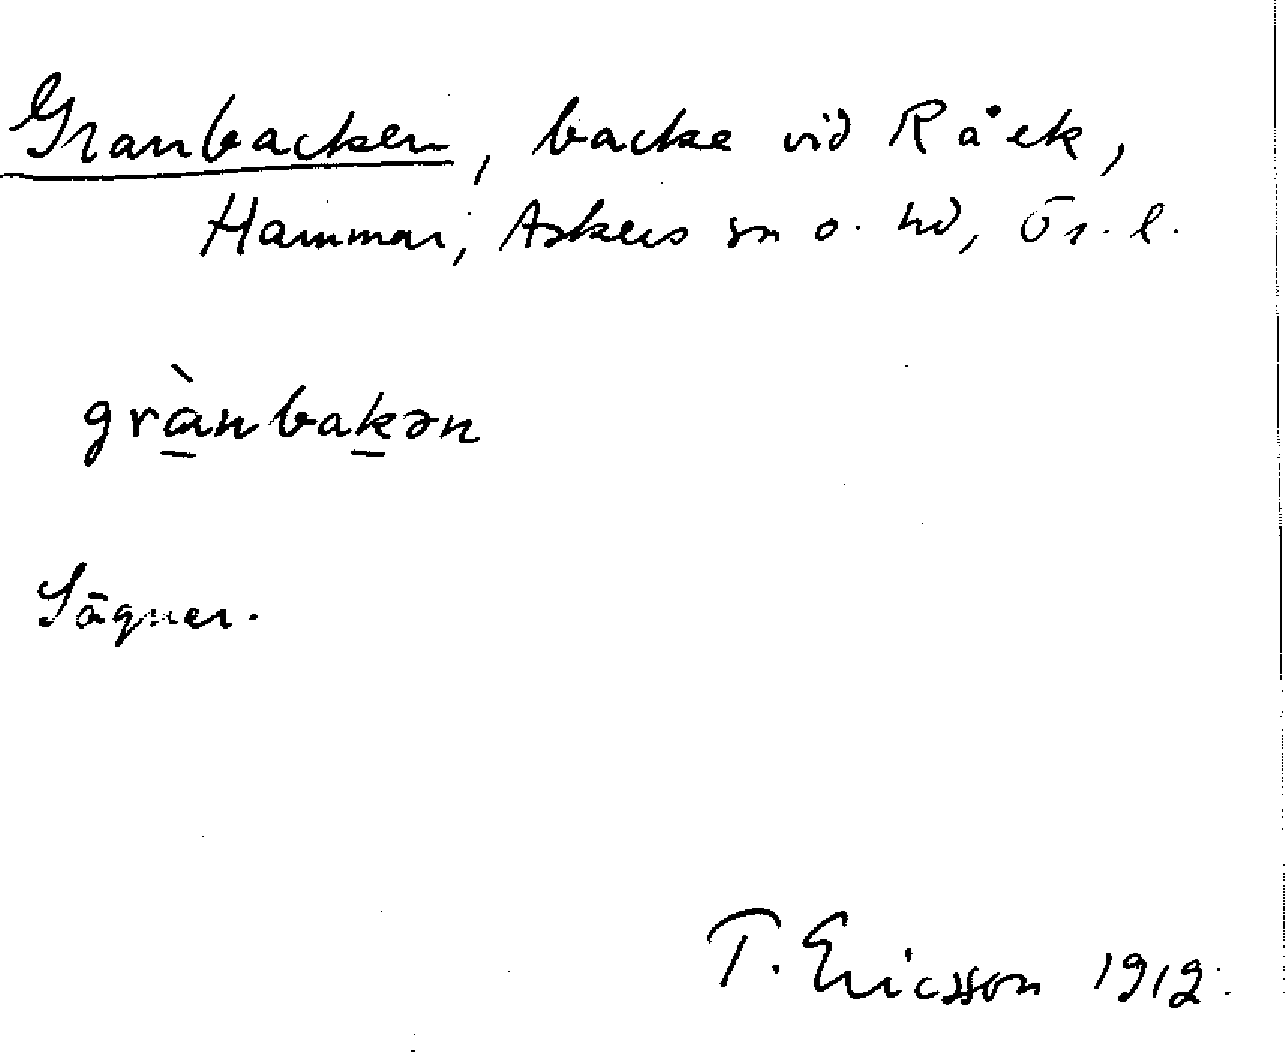 Granbacken, backe vid Råek,
Hammar, Askers sn o. hd, Ör. l.
grànbakən
Sägner.
T. Ericsson 1912.